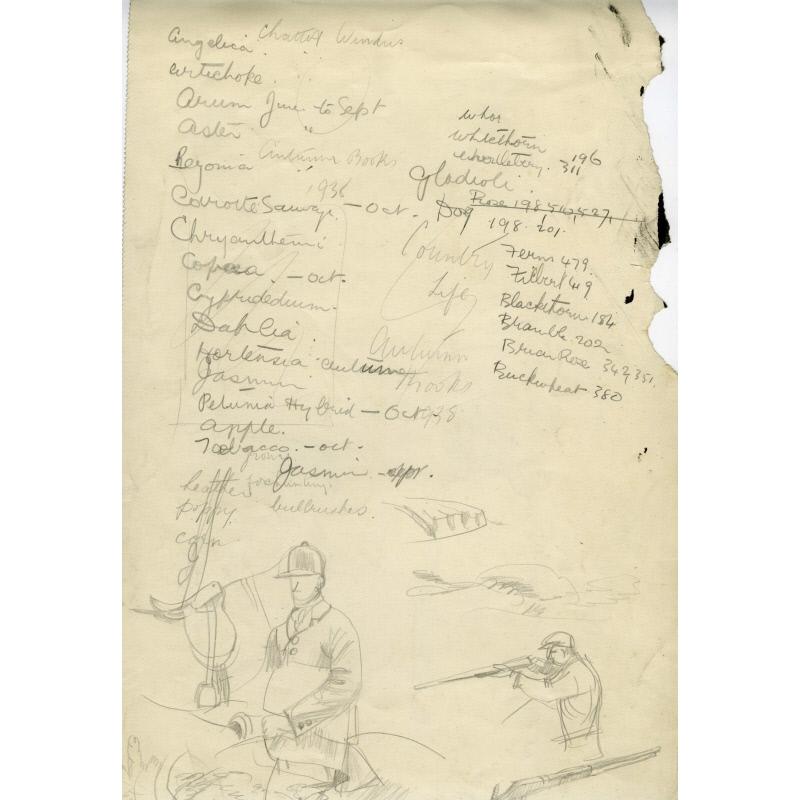 Angelica Chatto & Windus
Artichoke
Arum June to Sept
Aster "
Begonia Autumn Books
Carotte Sauvage - Oct. 1936
Chrysanthemi
Copaea - oct.
Cypridedium
Dahlia
Hortensia autumn
Jasmin
Petunia Hybrid - Oct
apple.
Tobacco. - oct.
Jasmin - apr.
heather foxhunting.
poppy bullrushes.
corn
Autumn
Books
1938
Country
Life
whor
whitethorn
whortleberry. 196
311
Gladioli
Dog Rose 198 510, 527,
198. 201.
Ferns 479.
Filbert 49
Blackthorn 184
Bramble 202
Briar Rose 342, 351,
Buckwheat 380